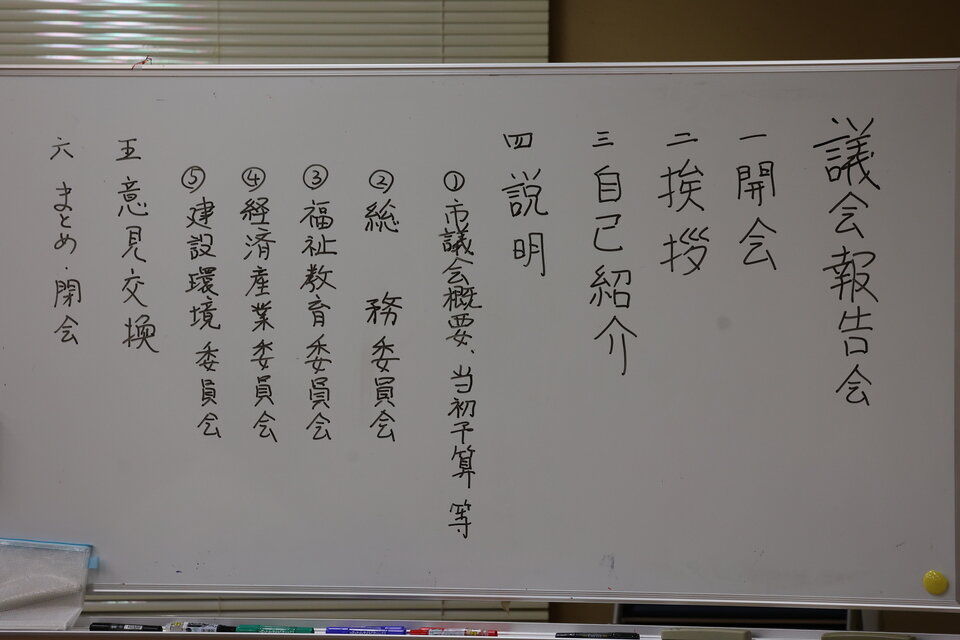 議会報告会
一 開会
二 挨拶
三 自己紹介
四 説明
①市議会概要、当初予算 等
②総 務 委員会
③福祉教育委員会
④経済産業委員会
⑤建設環境委員会
五 意見交換
六 まとめ・閉会